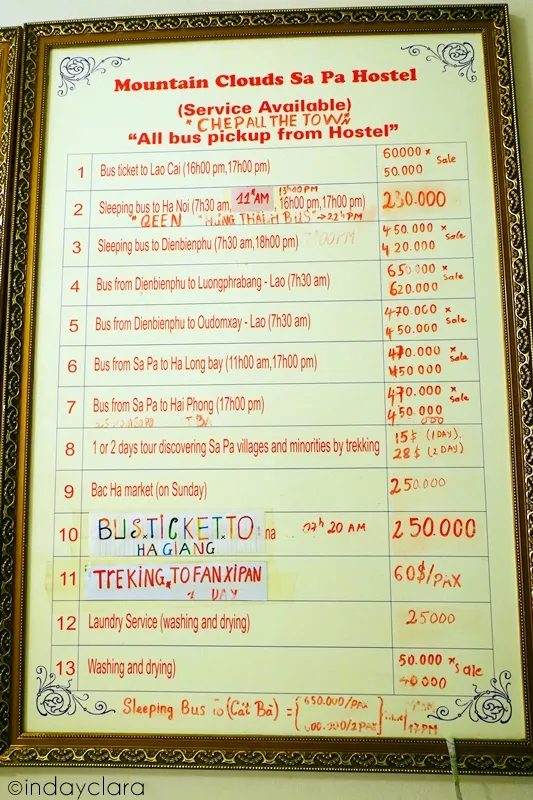 Mountain Clouds Sa Pa Hostel
(Service Available)
* CHEPALL THE TOWN
"All bus pickup from Hostel"
1 Bus ticket to Lao Cai (16h00 pm,17h00 pm) 60.000 x Sale
50.000
13h00 PM
2 Sleeping bus to Ha Noi (7h30 am, 11h AM, 16h00 pm,17h00 pm) 230.000
"QEEN "HUNG THANH BUS"
3 Sleeping bus to Dienbienphu (7h30 am,18h00 pm) 450.000 x Sale
420.000
4 Bus from Dienbienphu to Luongphrabang - Lao (7h30 am) 650.000 x Sale
620.000
5 Bus from Dienbienphu to Oudomxay - Lao (7h30 am) 470.000 x Sale
450.000
6 Bus from Sa Pa to Ha Long bay (11h00 am,17h00 pm) 470.000 x Sale
450000
7 Bus from Sa Pa to Hai Phong (17h00 pm) 470.000 x Sale
450.000
8 1 or 2 days tour discovering Sa Pa villages and minorities by trekking 15$ (1DAY).
28$ (2DAY)
9 Bac Ha market (on Sunday) 250.000
10 BUS.TICKET.TO na 07h 20 AM 250.000
HA GIANG
11 TREKING TO FANXIPAN 60$/PAX
1 DAY
12 Laundry Service (washing and drying) 25000
13 Washing and drying) 50.000 x Sale
40.000
Sleeping Bus To (Cát Bà) = 650.000/PAX
600.000/2PAX
©indayclara